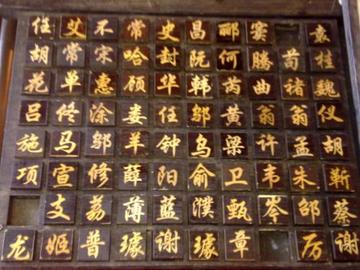 任艾不常史昌郦窦袁
胡常宋哈封阮何滕荀桂
花单惠顾华韩芮曲褚魏
吕佟涂娄任邬黄翁翁仪
施马邬羊钟乌梁许孟胡
项宣修薛阳俞卫韦朱靳
支荔薄蓝濮甄岑邵蔡
龙姬普璩谢璩章厉谢